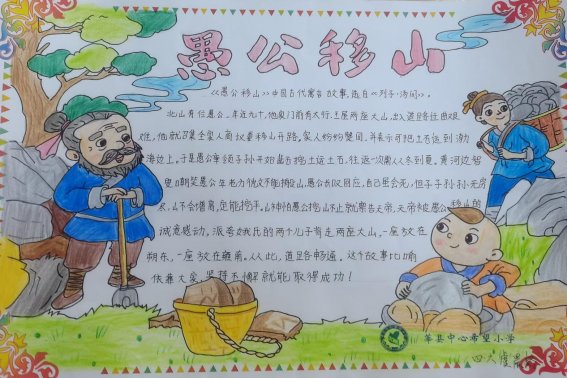 愚公移山
《愚公移山》中国古代寓言故事,选自《列子·汤问》。
北山有位愚公,年近九十,他家门前有太行、王屋两座大山,出入道路往曲艰
难,他就召集全家人商议要移山开路,家人纷纷赞同,并表示可把土石运到渤
海边上。于是愚公率领子孙开始凿石挖土运土石,往返一次需从冬到夏。黄河边智
叟嘲笑愚公年老力
愚公长叹回应,自己虽会死,但子子孙孙无穷
尽,山不会增高,定能挖平。山神怕愚公挖山不止就禀告天帝,天帝被愚公移山的
诚意感动,派夸娥氏的两个儿子背走两座大山,一座放在
朔东,一座放在雍南。从此,道路畅通。这个故事
坚持不懈就能取得成功!
单县中心希望小学
四